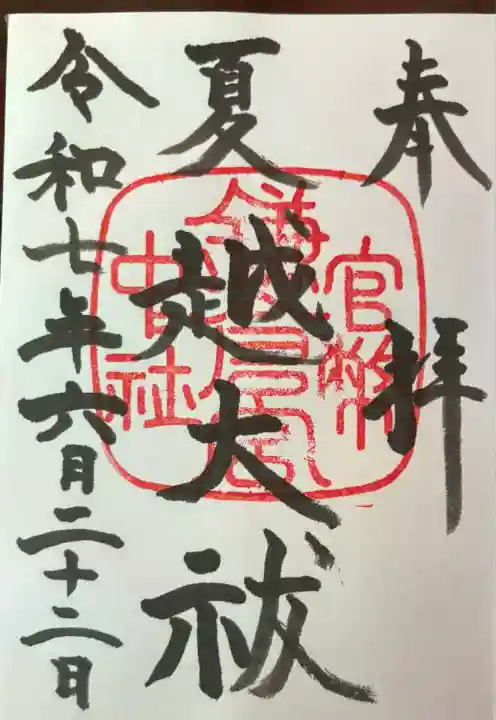 奉拝
夏越大祓
令和七年六月二十二日
官幣
中社